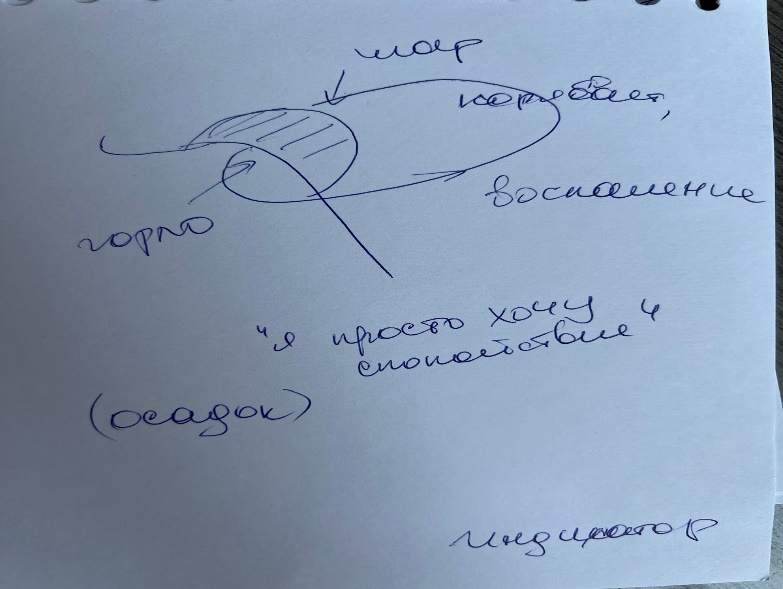 шар
воспаление
горло
"я просто хочу
спокойствие"
(осадок)
индикатор